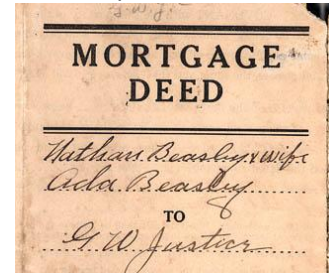 G.W.J.
MORTGAGE
DEED
Nathan Beasley & wife
Ada Beasley
TO
G W Justice